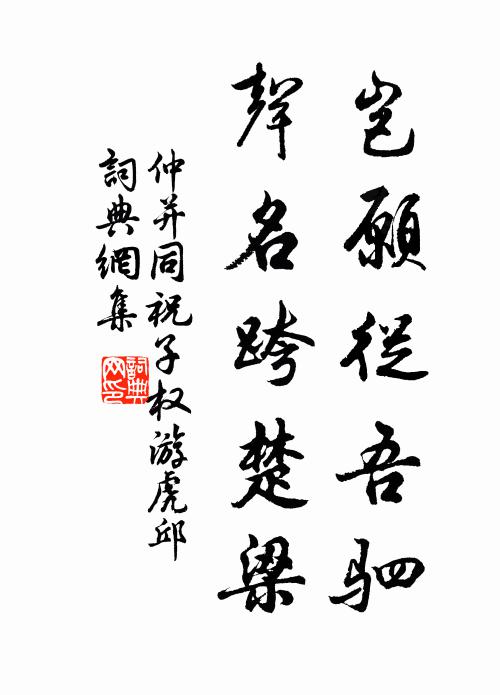 岂願從吾驷
聲名跨楚梁
仲并同祝子权游虎邱
詞典網集
詞典網印